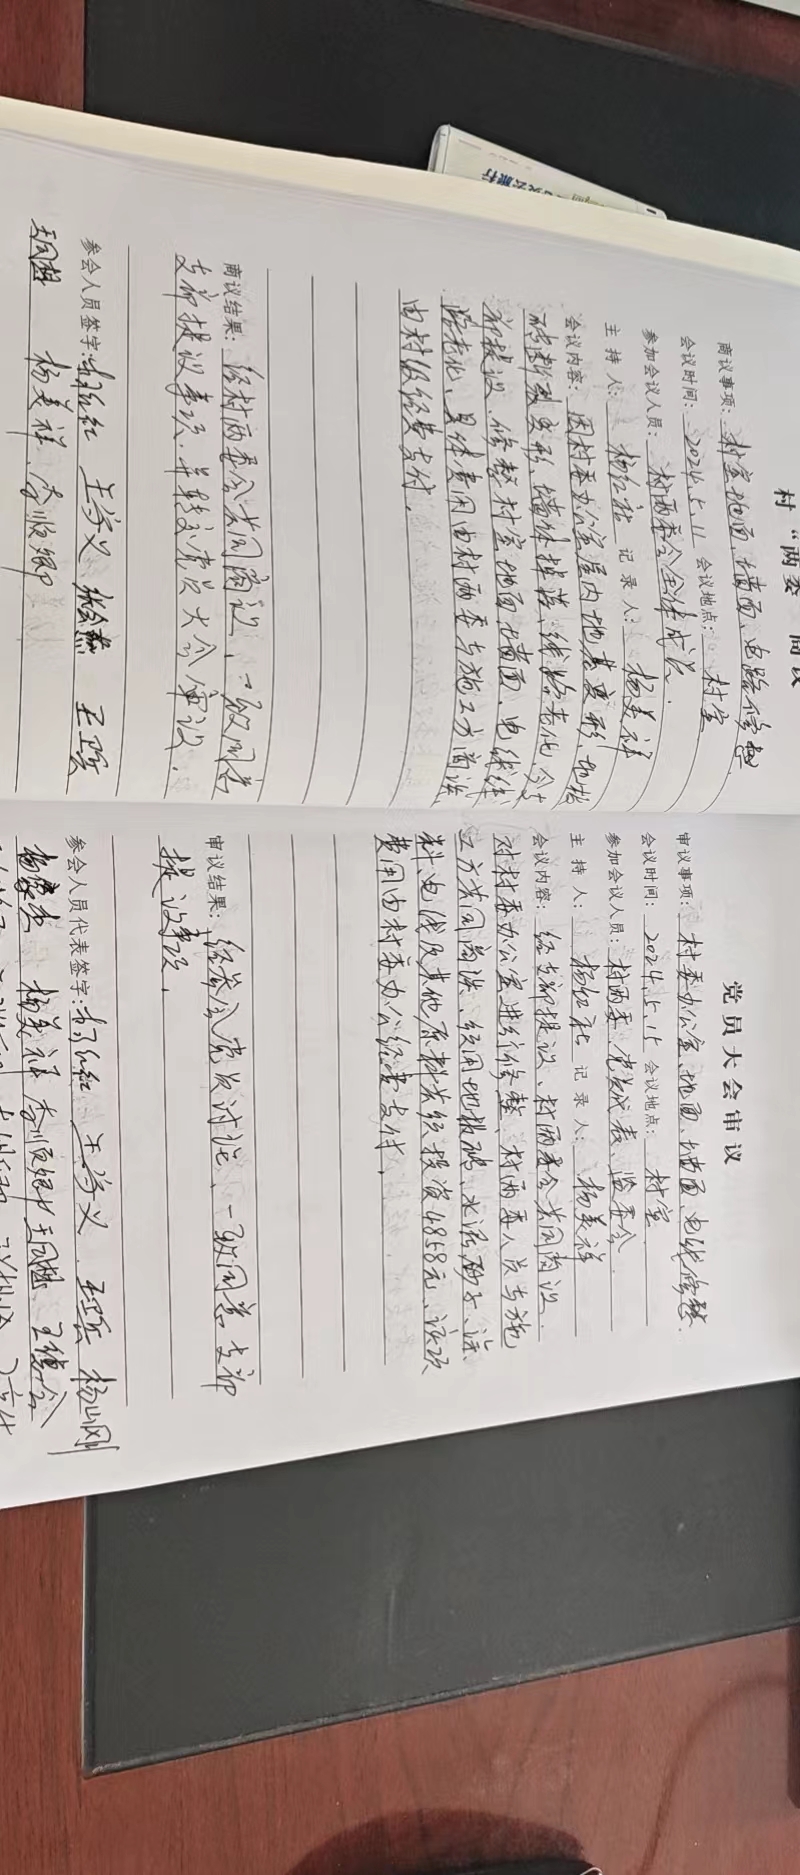 村“两委”商议
商议事项：村室地面、墙面、电路修整
会议时间：2024.5.11 会议地点：村室
参加会议人员：村两委会全体成员.
主持人：杨红社 记录人：杨美祥
会议内容：因村委办公室屋内地基变形、地板
砖断裂变形、墙体掉落、线路老化、今支
部提议、修整村室地面、墙面、电线线
路老化、具体费用由村两委与施工方商谈
由村级经费支付.
商议结果：经村两委会共同商议、一致同意
支部提议事项、并转交党员大会审议.
参会人员签字：
杨美祥、李顺卿
党员大会审议
审议事项：村委办公室、地面、墙面、电线修整.
会议时间：2024.5.15 会议地点：村室
参加会议人员：村两委、党员代表、监委会.
主持人：杨红社 记录人：杨美祥
会议内容：经支部提议、村两委会共同商议.
对村委办公室进行修整、村两委人员与施
工方共同商谈、经用地板砖、水泥砂子、涂
料、电线及其他原料共经投资4858元、该项
费用由村委办公经费支付.
审议结果：经参会党员讨论、一致同意支部
提议事项.
参会人员代表签字：
杨美祥 李顺卿